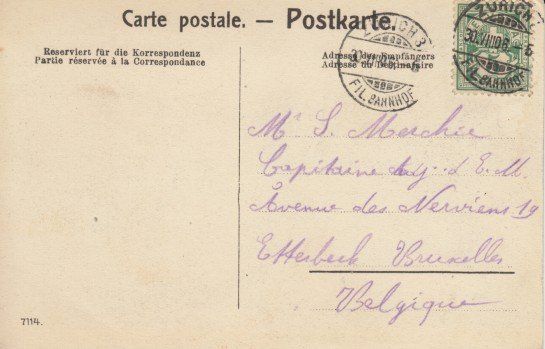 Carte postale. — Postkarte.
Reserviert für die Korrespondenz
Partie réservée à la Correspondance
Adresse des Empfängers
Adresse du Destinataire
ZÜRICH 3
FIL. BAHNHOF
ZÜRICH
FIL. BAHNHOF
Mr S. Merchie
Capitaine adj. d E. M.
Avenue des Nerviens 19
Etterbeek Bruxelles
Belgique
7114.